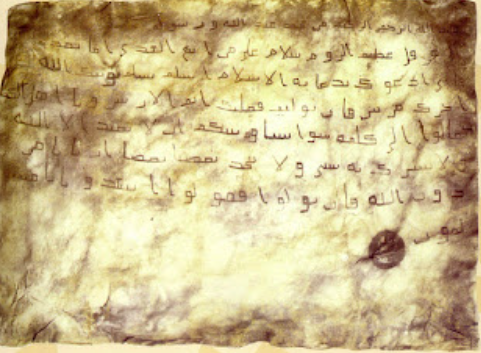 الله الرحمن الرحيم من محمد عبد الله ورسوله
هرقل عظيم الروم سلام على من اتبع الهدى اما بعد
ادعوك بدعاية الاسلام اسلم تسلم يوتك الله
اجرك مرتين فان توليت فعليك اثم ويا اهل
تعالوا الى كلمة سوا بيننا وبينكم ان لا نعبد الا الله
ولا نشرك به شيا ولا يتخذ بعضنا بعضا اربابا من
دون الله فان تولوا فقولوا اشهدوا بانا مسل
مون